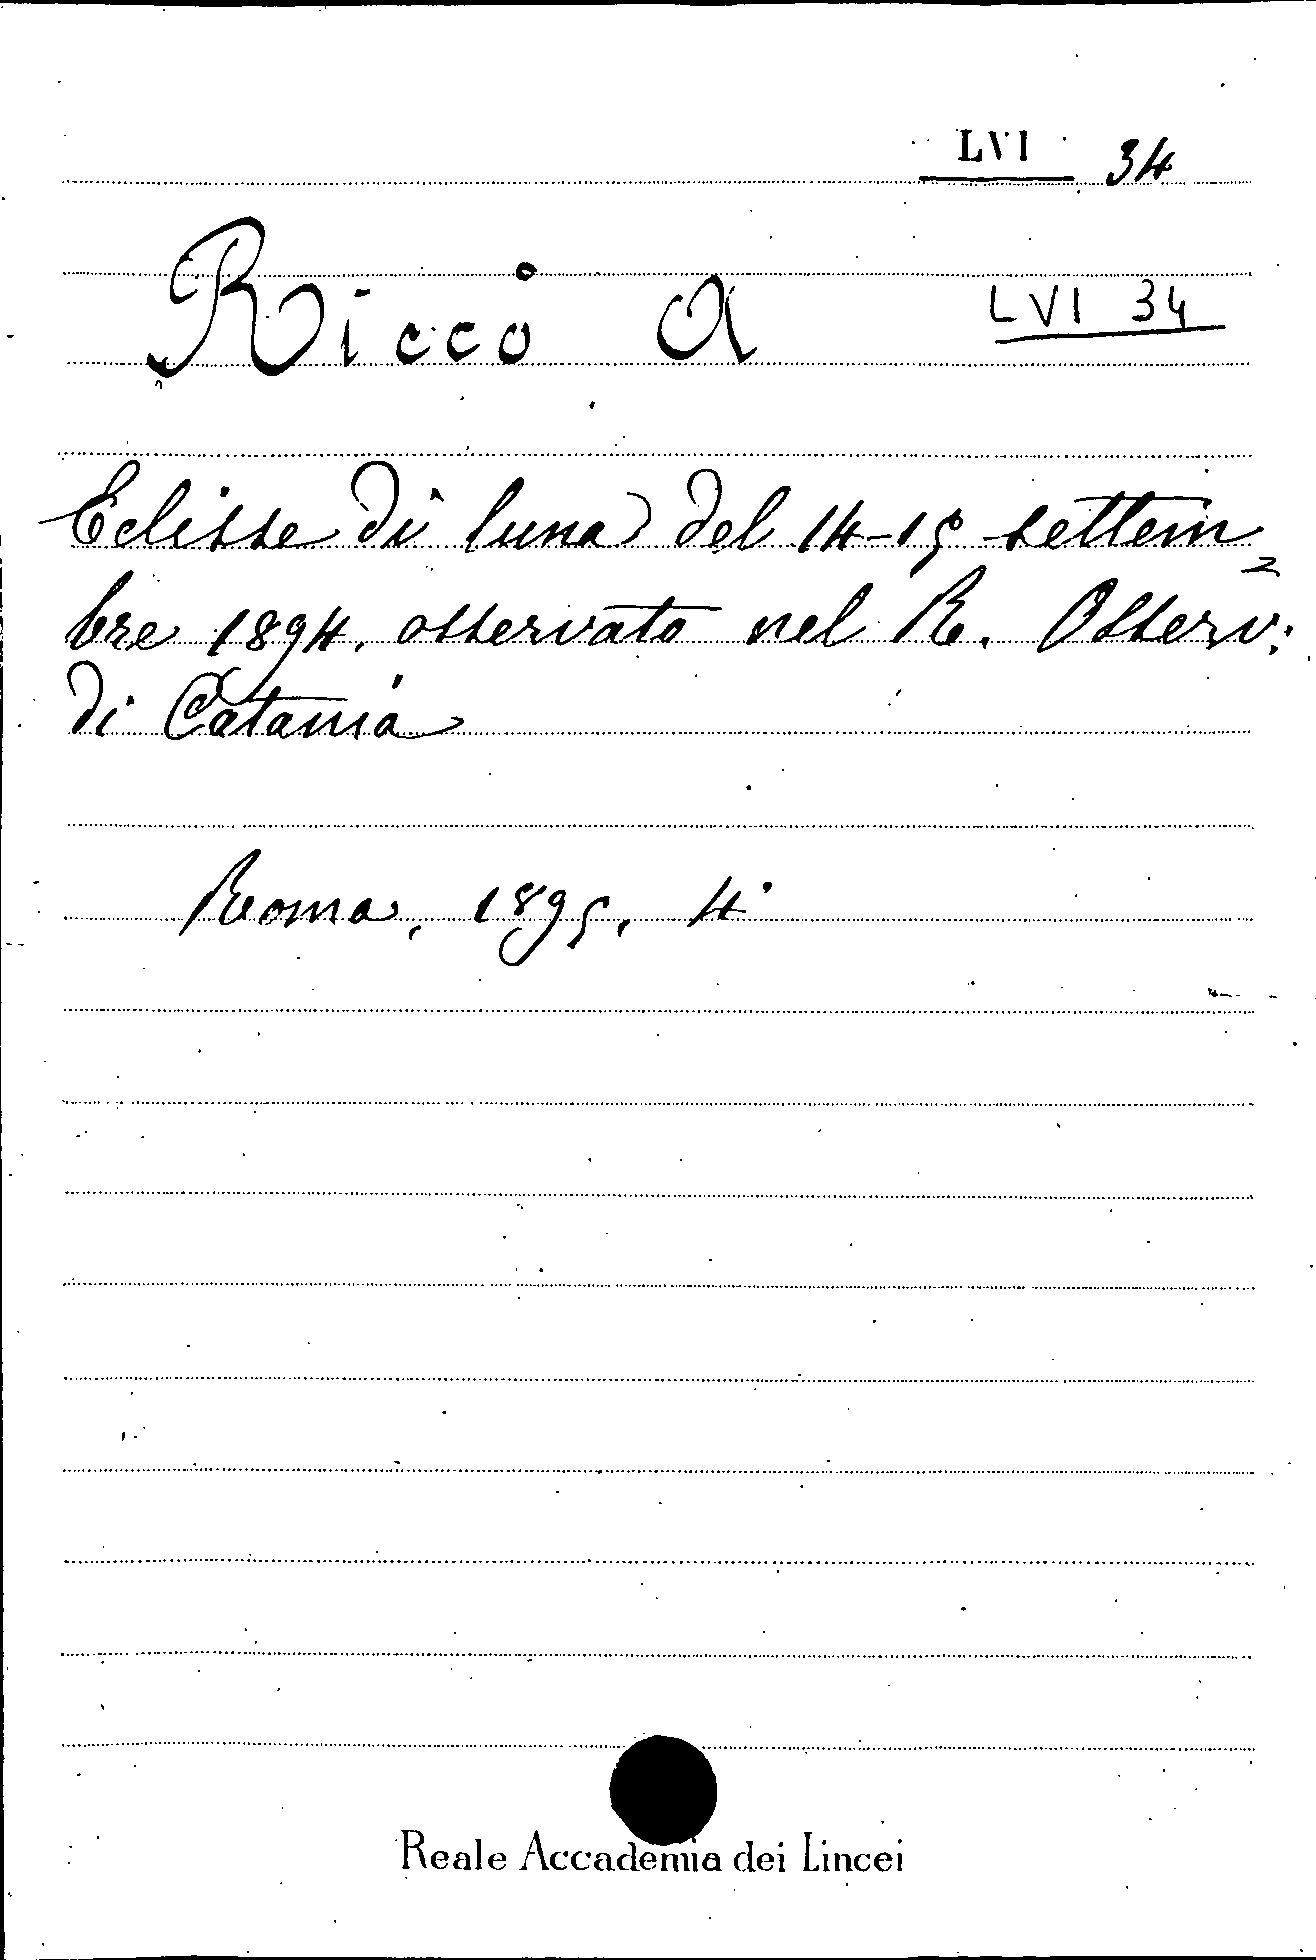 LVI 34
Riccò A
LVI 34
Eclisse di luna del 14-15 settem=
bre 1894, osservato nel R. Osserv:
di Catania
Roma, 1895, 4°
Reale Accademia dei Lincei